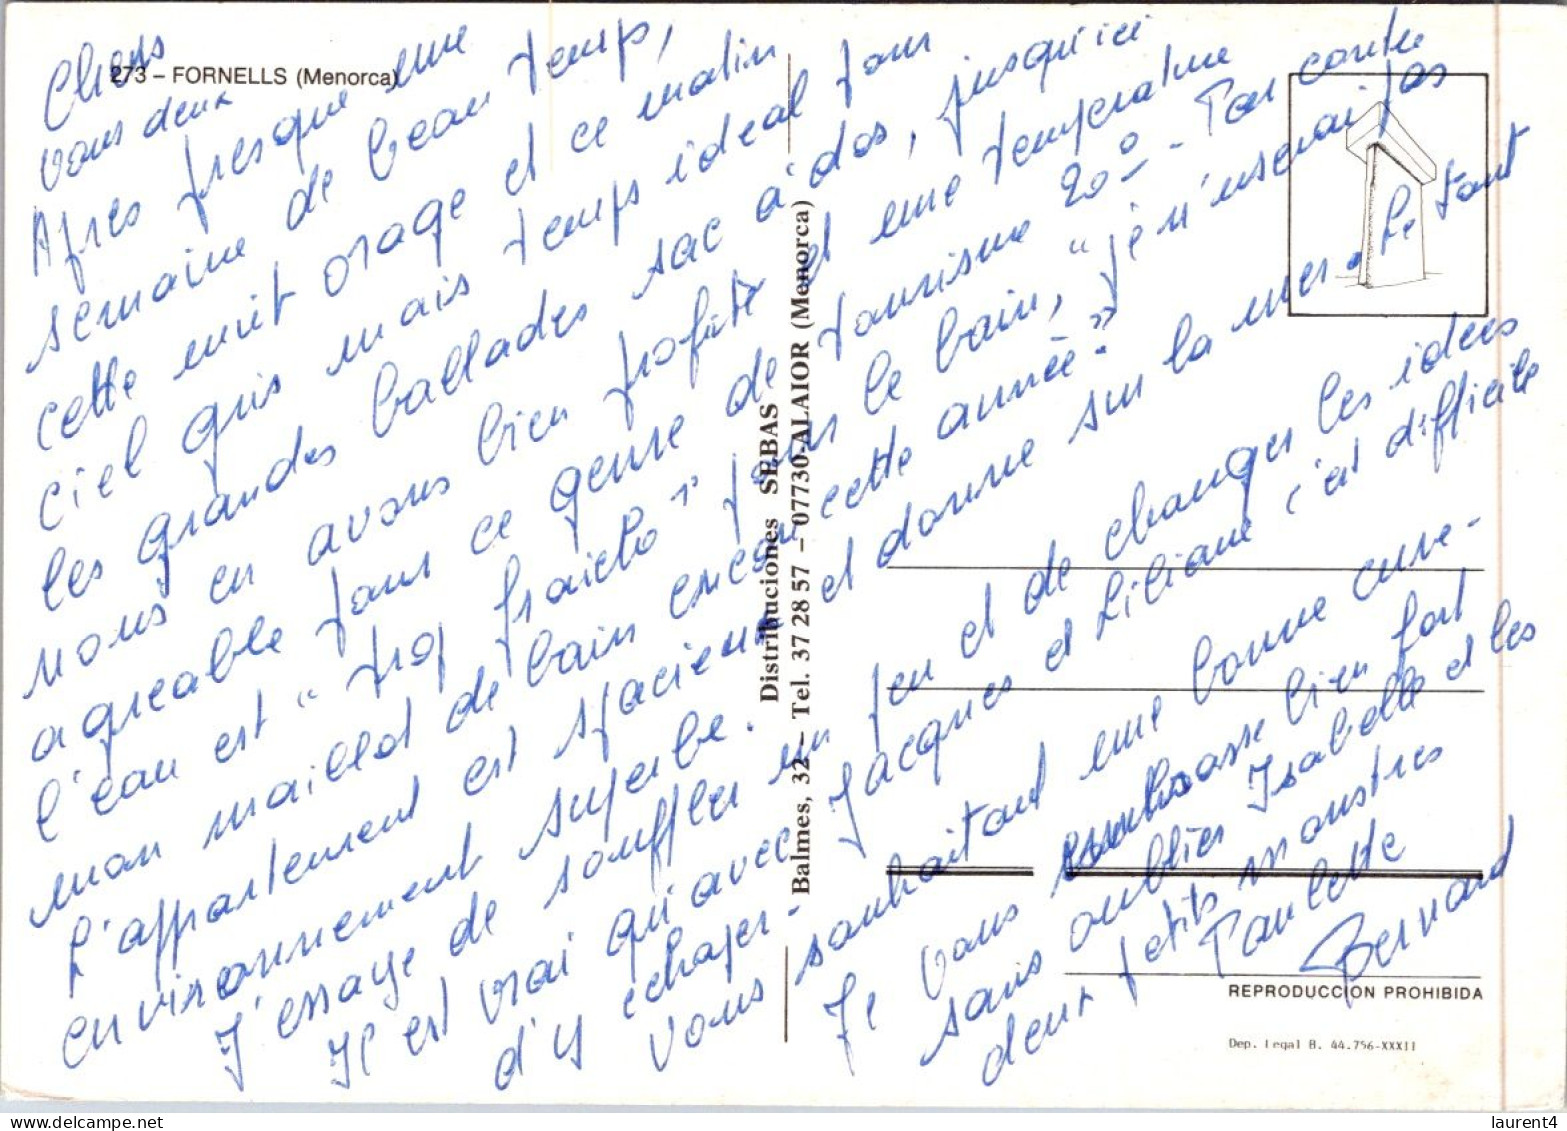 273 – FORNELLS (Menorca)
Chers
vous deux
Après presque une
semaine de beau temps,
cette nuit orage et ce matin
ciel gris mais temps idéal pour
les grandes ballades sac à dos, jusqu'ici
nous en avons bien profité et une température
agreable pour ce genre de tourisme 20° - Par contre
l'eau est "trop fraiche" pour le bain, "je n'userai pas
mon maillot de bain encore cette année".
L'appartement est spacieux et donne sur la mer. Le tout
environnement superbe.
J'essaye de souffler un peu et de changer les idées
Il est vrai qu'avec Jacques et Liliane c'est difficile
d'y échaper -
Vous souhaitant une bonne cure -
Je vous embrasse bien fort
sans oublier Isabelle et les
deux petits monstres
Paulette
Bernard
Distribuciones SEBAS
Balmes, 32 – Tel. 37 28 57 – 07730-ALAIOR (Menorca)
REPRODUCCION PROHIBIDA
Dep. Legal B. 44.756-XXXII
laurent4